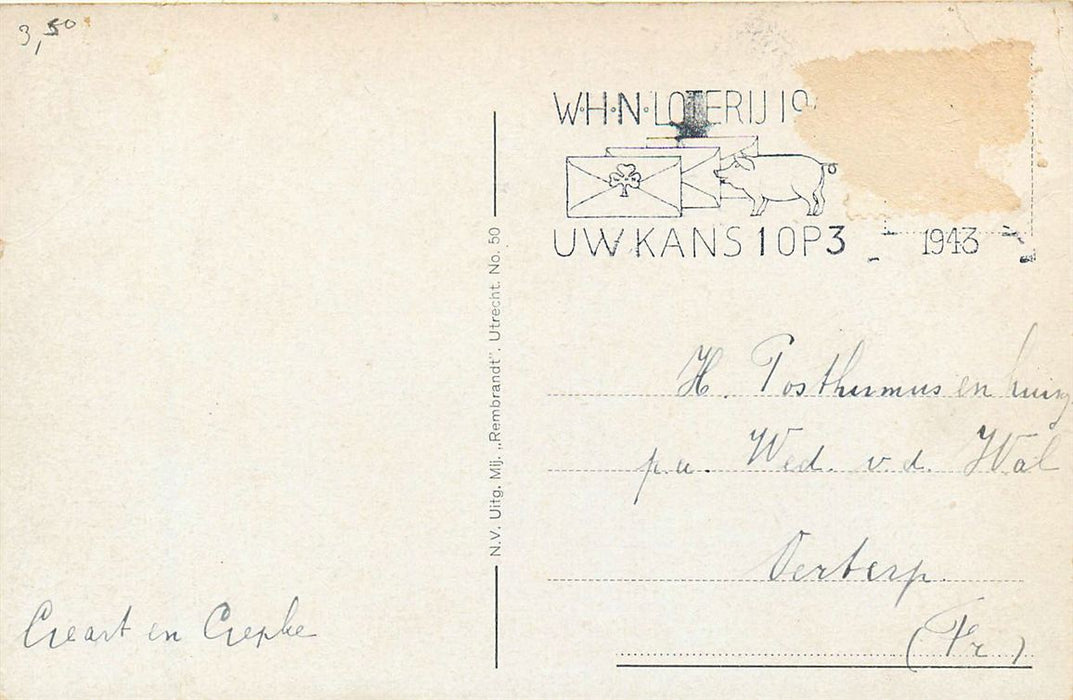 3,50
W·H·N·LOTERIJ 19
UW KANS 1 OP 3
1943
N.V. Uitg. Mij. „Rembrandt”. Utrecht. No. 50
H. Posthumus en huisg
p.a. Wed. v.d. Wal
Oerterp.
(Fr)
Geart en Gepke